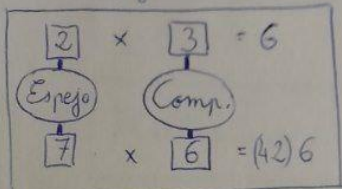 2 x 3 = 6
Espejo Comp.
7 x 6 = (42) 6